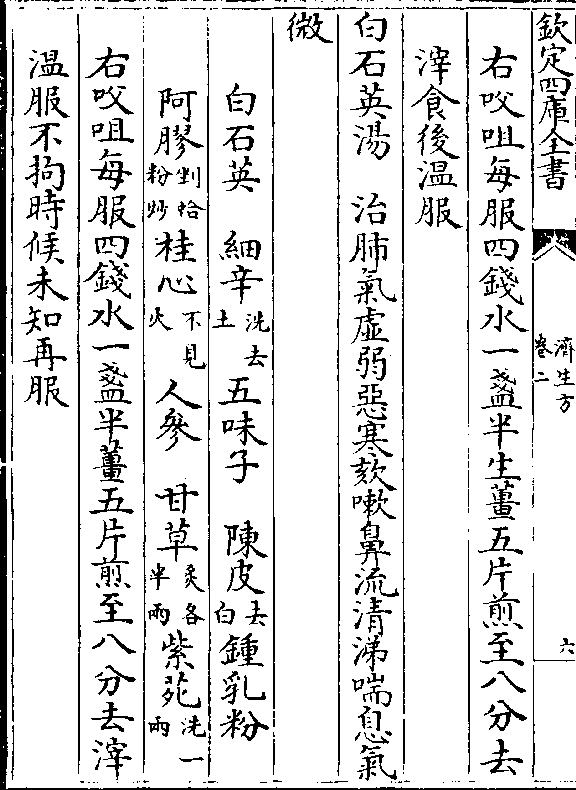 欽定四庫全書
濟生方
卷二
六
右㕮咀每服四錢水一盞半生薑五片煎至八分去
滓食後溫服
白石英湯 治肺氣虛弱惡寒欬嗽鼻流清涕喘息氣
微
白石英 細辛洗去土 五味子 陳皮去白 鍾乳粉
阿膠剉蛤粉炒 桂心不見火 人參 甘草炙各半兩 紫苑洗一兩
右㕮咀每服四錢水一盞半薑五片煎至八分去滓
溫服不拘時候未知再服